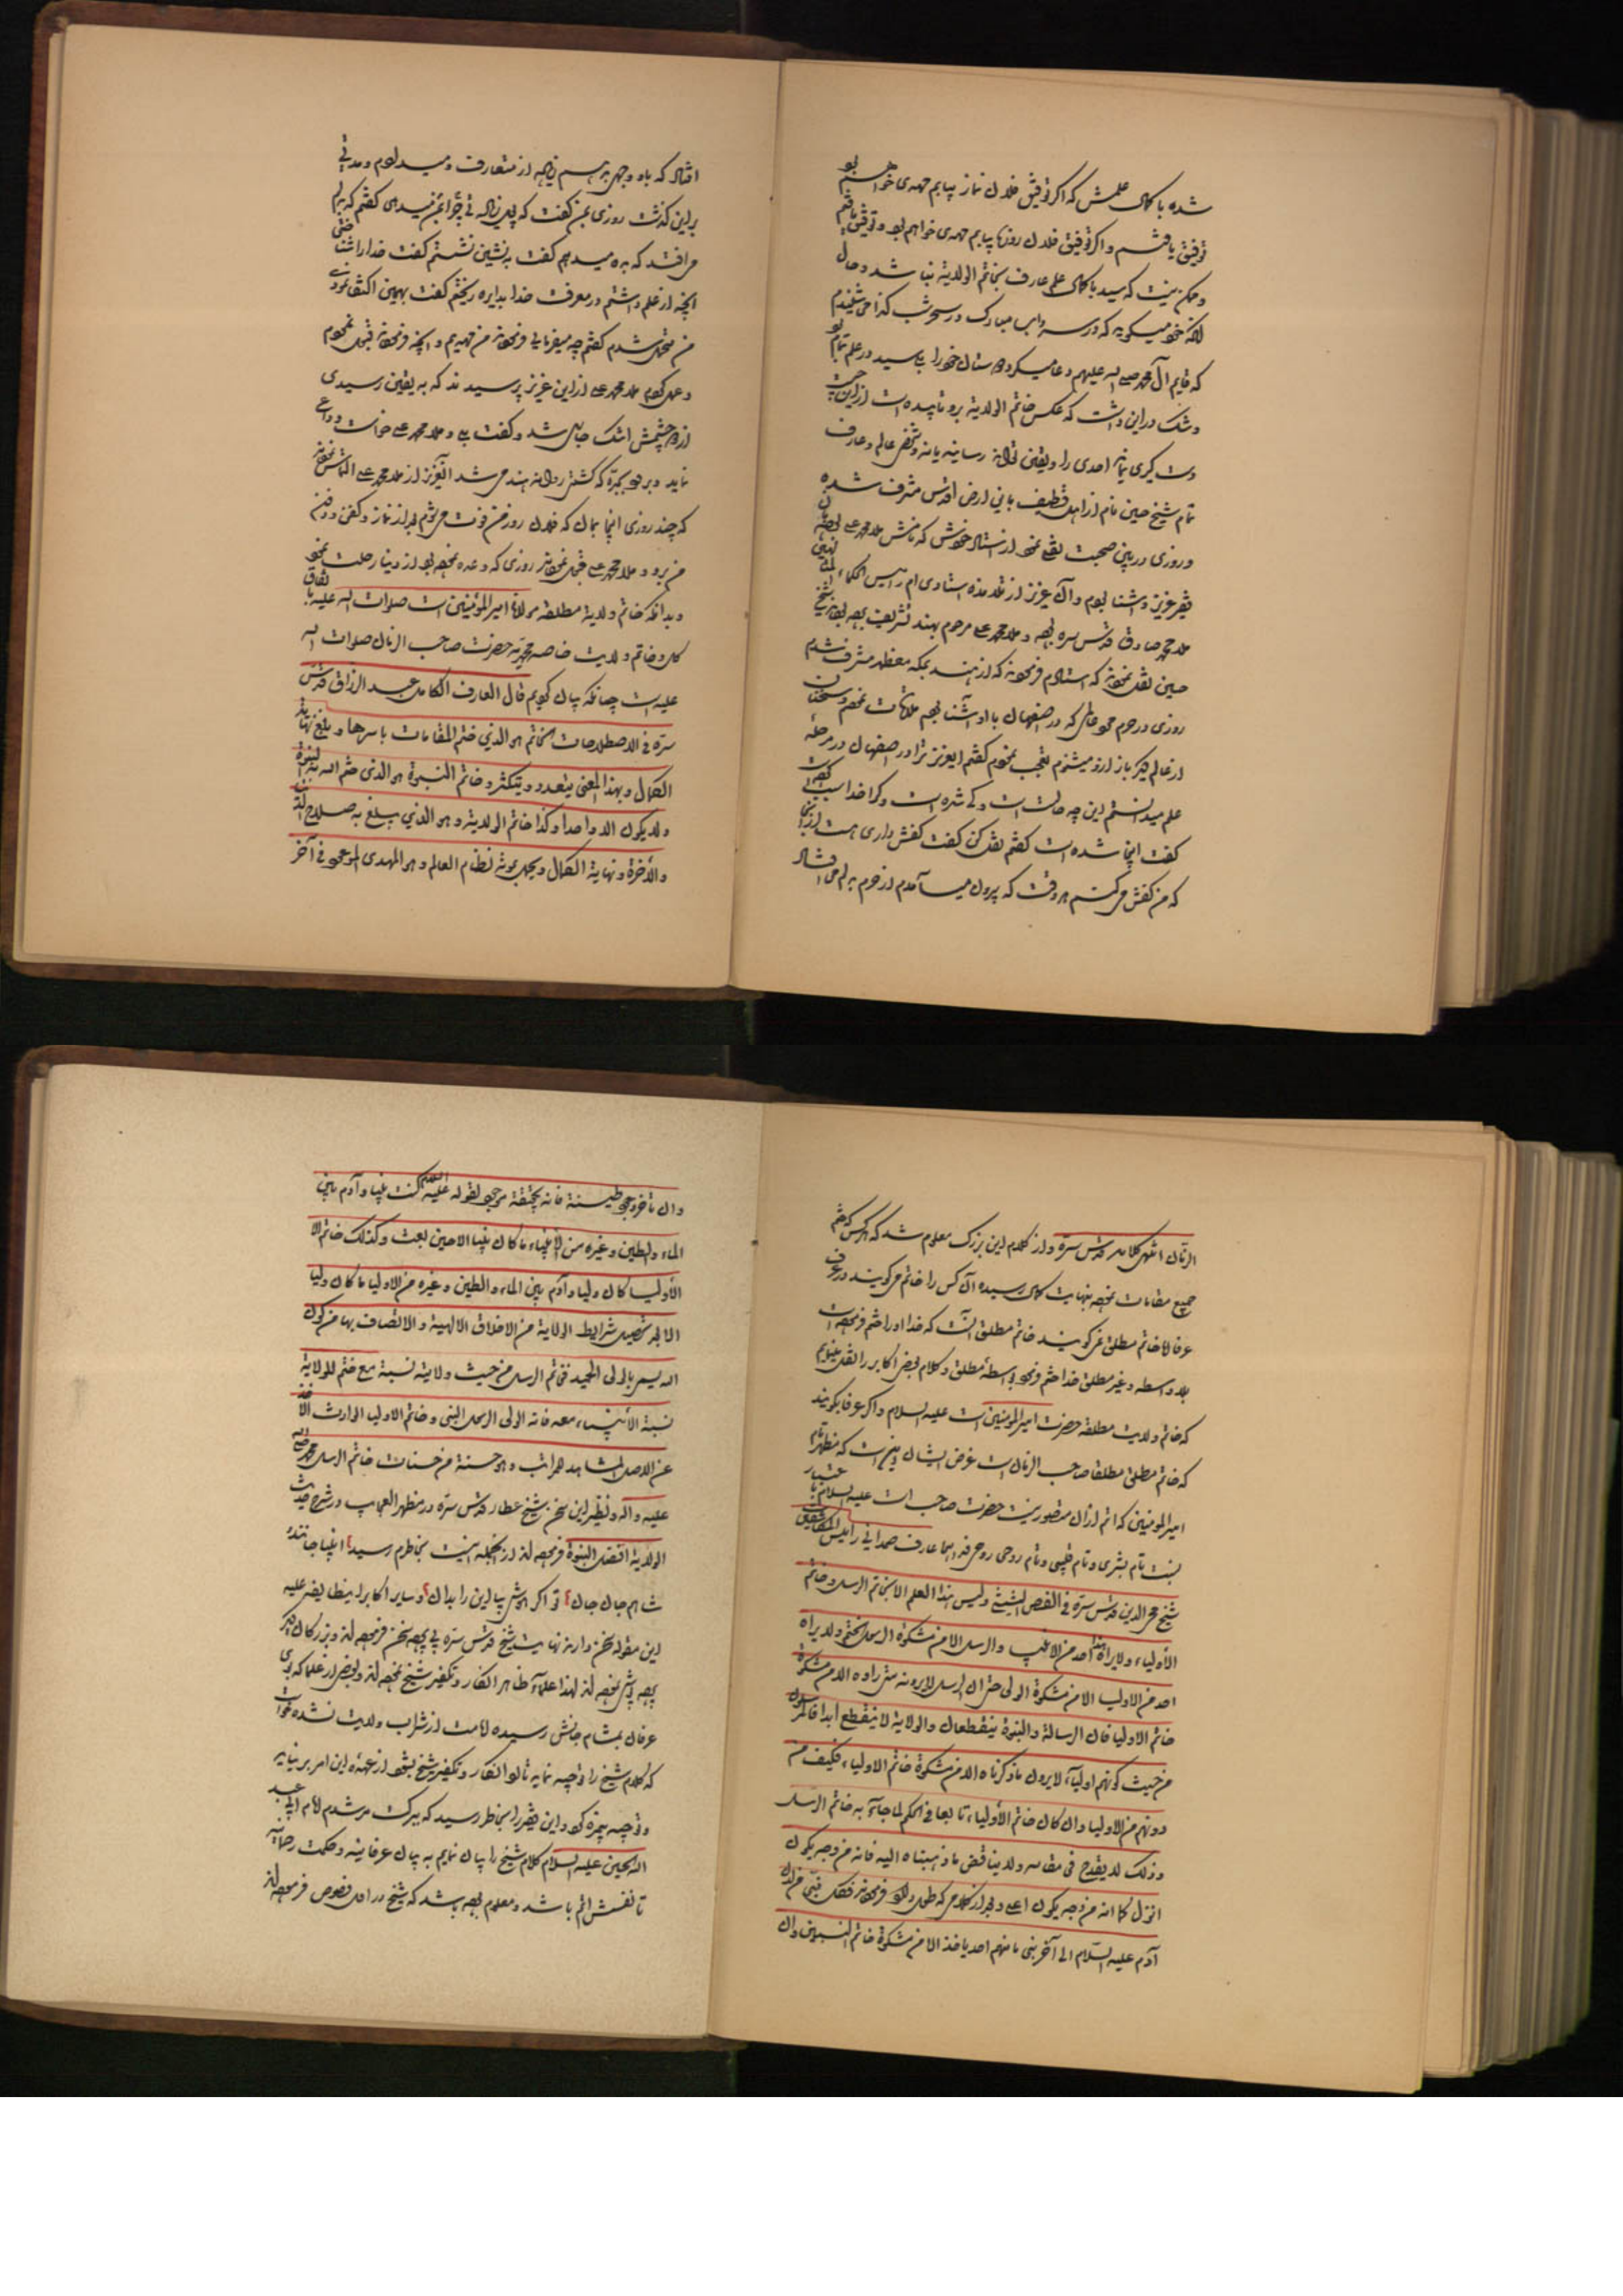 شده با کمال علمش که اگر توفیق فلان نماز بیابم مهدی خواهم بو
توفیق یافتم و اگر توفیق فلان روزها بیابم مهدی خواهم بود و توفیق یافتم
و ممکن نیست که سید با کمال علم عارف بخاتم الولایة نباشد و حال
آنکه خود میگوید که در سرداب مبارک در سحر شب گذا می شنیدم
که قایم آل محمد صلی الله علیهم دعا میکرد دوستان خود را
و شک در این داشت که عکس خاتم الولایة برو تابیده است از این جهت
دست گیری نماند احدی را و یقین نتواند رسانید یا نه و شخص عالم و عارف
تمام شیخ حسین نام از اهل قطیف باین ارض اقدس مشرف شده
و روزی در بین صحبت نقل نمود از استاد خودش که نامش ملا محمد علی
فقیر عزیز و آشنا بودم و آن عزیز از تلامذه استادی ام رئیس الحکماء
ملا محمد صادق قدس سره بوده و ملا محمد علی مرحوم بهند تشریف برده بودند شیخ
حسین نقل نمودند که استادم فرمودند که از هند بمکه معظمه مشرف شدم
روزی در حرم مجاوری که در اصفهان با او آشنا بودم ملاقات نمودم و سخنان
از عالم دیگر باز از او میشنوم تعجب نمودم گفتم ای عزیز ترا در اصفهان در مرحله
علم میدانستم این چه حالت است و کی شده است و کرا خدا سبب
گفت اینجا شده است گفتم نقل کن گفت کفش داری هست در اینجا
که من کفش می کنم هر وقت که بیرون میآمدم از حرم بدلم می افتاد
افتاد که باو وجهی بدهم زیاده از متعارف و میدادم و مدتی
بر این گذشت روزی بمن گفت که پول زیاد تر چرا بمن میدهی گفتم که بدلم
می افتد که بده میدهم گفت بنشین نشستم گفت خدا را شناختی
آنچه از علم داشتم در معرفت خدا بدایره ریختم گفت بهمین اکتفا نمودی
من متحمل شدم گفتم چه میفرمایی فرمودند من فهمیدم و آنچه فرمودند قبول نمودم
و عمل کردم ملا محمد علی از این عزیز پرسیدند که به یقین رسیدی
از دو چشمش اشک جاری شد و گفت بلی و ملا محمد علی خواست وداع
نماید و برود بجده که کشتی روانه هند می شد آن عزیز از ملا محمد علی التماس نمودند
که چند روزی اینجا بمان که فلان روز من فوت می شوم بعد از نماز و کفن و دفن
من برو و ملا محمد علی قبول نمودند روزی که وعده نموده بود از دنیا رحلت نمود
و بدانکه خاتم ولایة مطلقه مولانا امیر المؤمنین است صلوات الله علیه باتفاق
کل و خاتم ولایت خاصه محمدیه حضرت صاحب الزمان صلوات الله
علیه است چنانکه بیان کردیم قال العارف الکامل عبد الرزاق قدس
سره فی الاصطلاحات الخاتم هو الذی ختم المقامات باسرها و بلغ نهایة
الکمال و بهذا المعنی یتعدد و یتکثر و خاتم النبوة هو الذی ختم الله به النبوة
ولا یکون الا واحدا و کذا خاتم الولایة و هو الذی یبلغ به صلاح الدنیا
والآخرة و نهایة الکمال و یختل بموته نظام العالم و هو المهدی الموعود فی آخر
الزمان انتهی کلامه قدس سره و از کلام این بزرگ معلوم شد که هر کس که ختم
جمیع مقامات نموده بنهایت کمال رسیده آن کس را خاتم می گویند در عرف
عرفا اما خاتم مطلق نمی گویند خاتم مطلق آنست که خدا او را ختم فرموده است
بلا واسطه و غیر مطلق خدا ختم فرموده بواسطه مطلق و کلام بعض اکابر را نقل نماییم
که خاتم ولایت مطلقه حضرت امیر المؤمنین است علیه السلام و اگر عرفا بگویند
که خاتم مطلق مطلقا صاحب الزمان است غرض ایشان این است که مظهر تام
امیر المؤمنین که اتم از آن متصور نیست حضرت صاحب است علیه السلام باعتبار
نیست تام بشری و تام قلبی و تام روحی روحی فداه اما عارف صمدانی رئیس المکاشفین
شیخ محی الدین قدس سره فی الفص الشیثی ولیس هذا العلم الا لخاتم الرسل و خاتم
الأولیاء ولا یراه أحد من الانبیاء والرسل الا من مشکوة الرسول الختم ولا یراه
احد من الاولیاء الا من مشکوة الولی حتی ان الرسل لا یرونه متی راوه الا من مشکوة
خاتم الاولیا فان الرسالة والنبوة ینقطعان والولایة لا ینقطع ابدا فالمرسلون
من حیث کونهم اولیاء لا یرون ما ذکرناه الا من مشکوة خاتم الاولیاء فکیف من
دونهم من الاولیا وان کان خاتم الأولیاء تابعا فی الحکم لما جاء به خاتم الرسل
وذلک لا یقدح فی مقامه ولا یناقض ما ذهبنا الیه فانه من وجه یکون
انزل کما انه من وجه یکون اعلی و بعد از کلامی که طولی دارد فرمودند فکل نبی من لدن
آدم علیه السلام الی آخر نبی ما منهم احد یاخذ الا من مشکوة خاتم النبیین وان
وان تاخر وجود طینته فانه بحقیقته موجود لقوله علیه السلام کنت نبیا و آدم بین
الماء والطین وغیره من الأنبیاء ما کان نبیا الا حین بعث وکذلک خاتم الا
الأولیاء کان ولیا و آدم بین الماء والطین وغیره من الاولیا ما کان ولیا
الا بعد تحصیل شرایط الولایة من الاخلاق الالهیة والاتصاف بها من کون
الله یسمی بالولی الحمید فخاتم الرسل من حیث ولایته نسبته مع ختم للولایة
نسبة الأنبیاء معه فانه الولی الرسول النبی وخاتم الاولیا الوارث الآخذ
عن الاصل المشاهد للمراتب وهو حسنة من حسنات خاتم الرسل محمد صلی الله
علیه وآله و نظیر این سخن شیخ عطار قدس سره در مظهر العجایب در شرح حدیث
الولایة افضل النبوة فرموده اند از آنجمله این بیت بخاطرم رسید انبیا جانند
شاهم جان جان تو اگر هوش بیا این را بدان و سایر اکابر
این مقوله سخن دارند نهایت شیخ قدس سره بی پرده سخن فرموده اند و بزرگان دیگر
پرده پوشی نموده اند لهذا علماء ظاهر انکار و تکفیر شیخ نموده اند و بعض از علما که بوی
عرفان بمشام جانش رسیده اما مست از شراب ولایت نشده خواسته
که کلام شیخ را توجیه نماید تا او انکار و تکفیر شیخ بشود از عهده این امر بر نیامده
و توجیه بیمزه کرده و این فقیر را بخاطر رسید که ببرکت مرشدم امام ابی عبد
الله الحسین علیه السلام کلام شیخ را بیان نمایم به بیان عرفانیه و حکمت رحمانیه
تا نفسش اتم باشد و معلوم بوده باشد که شیخ در اول فصوص فرموده اند